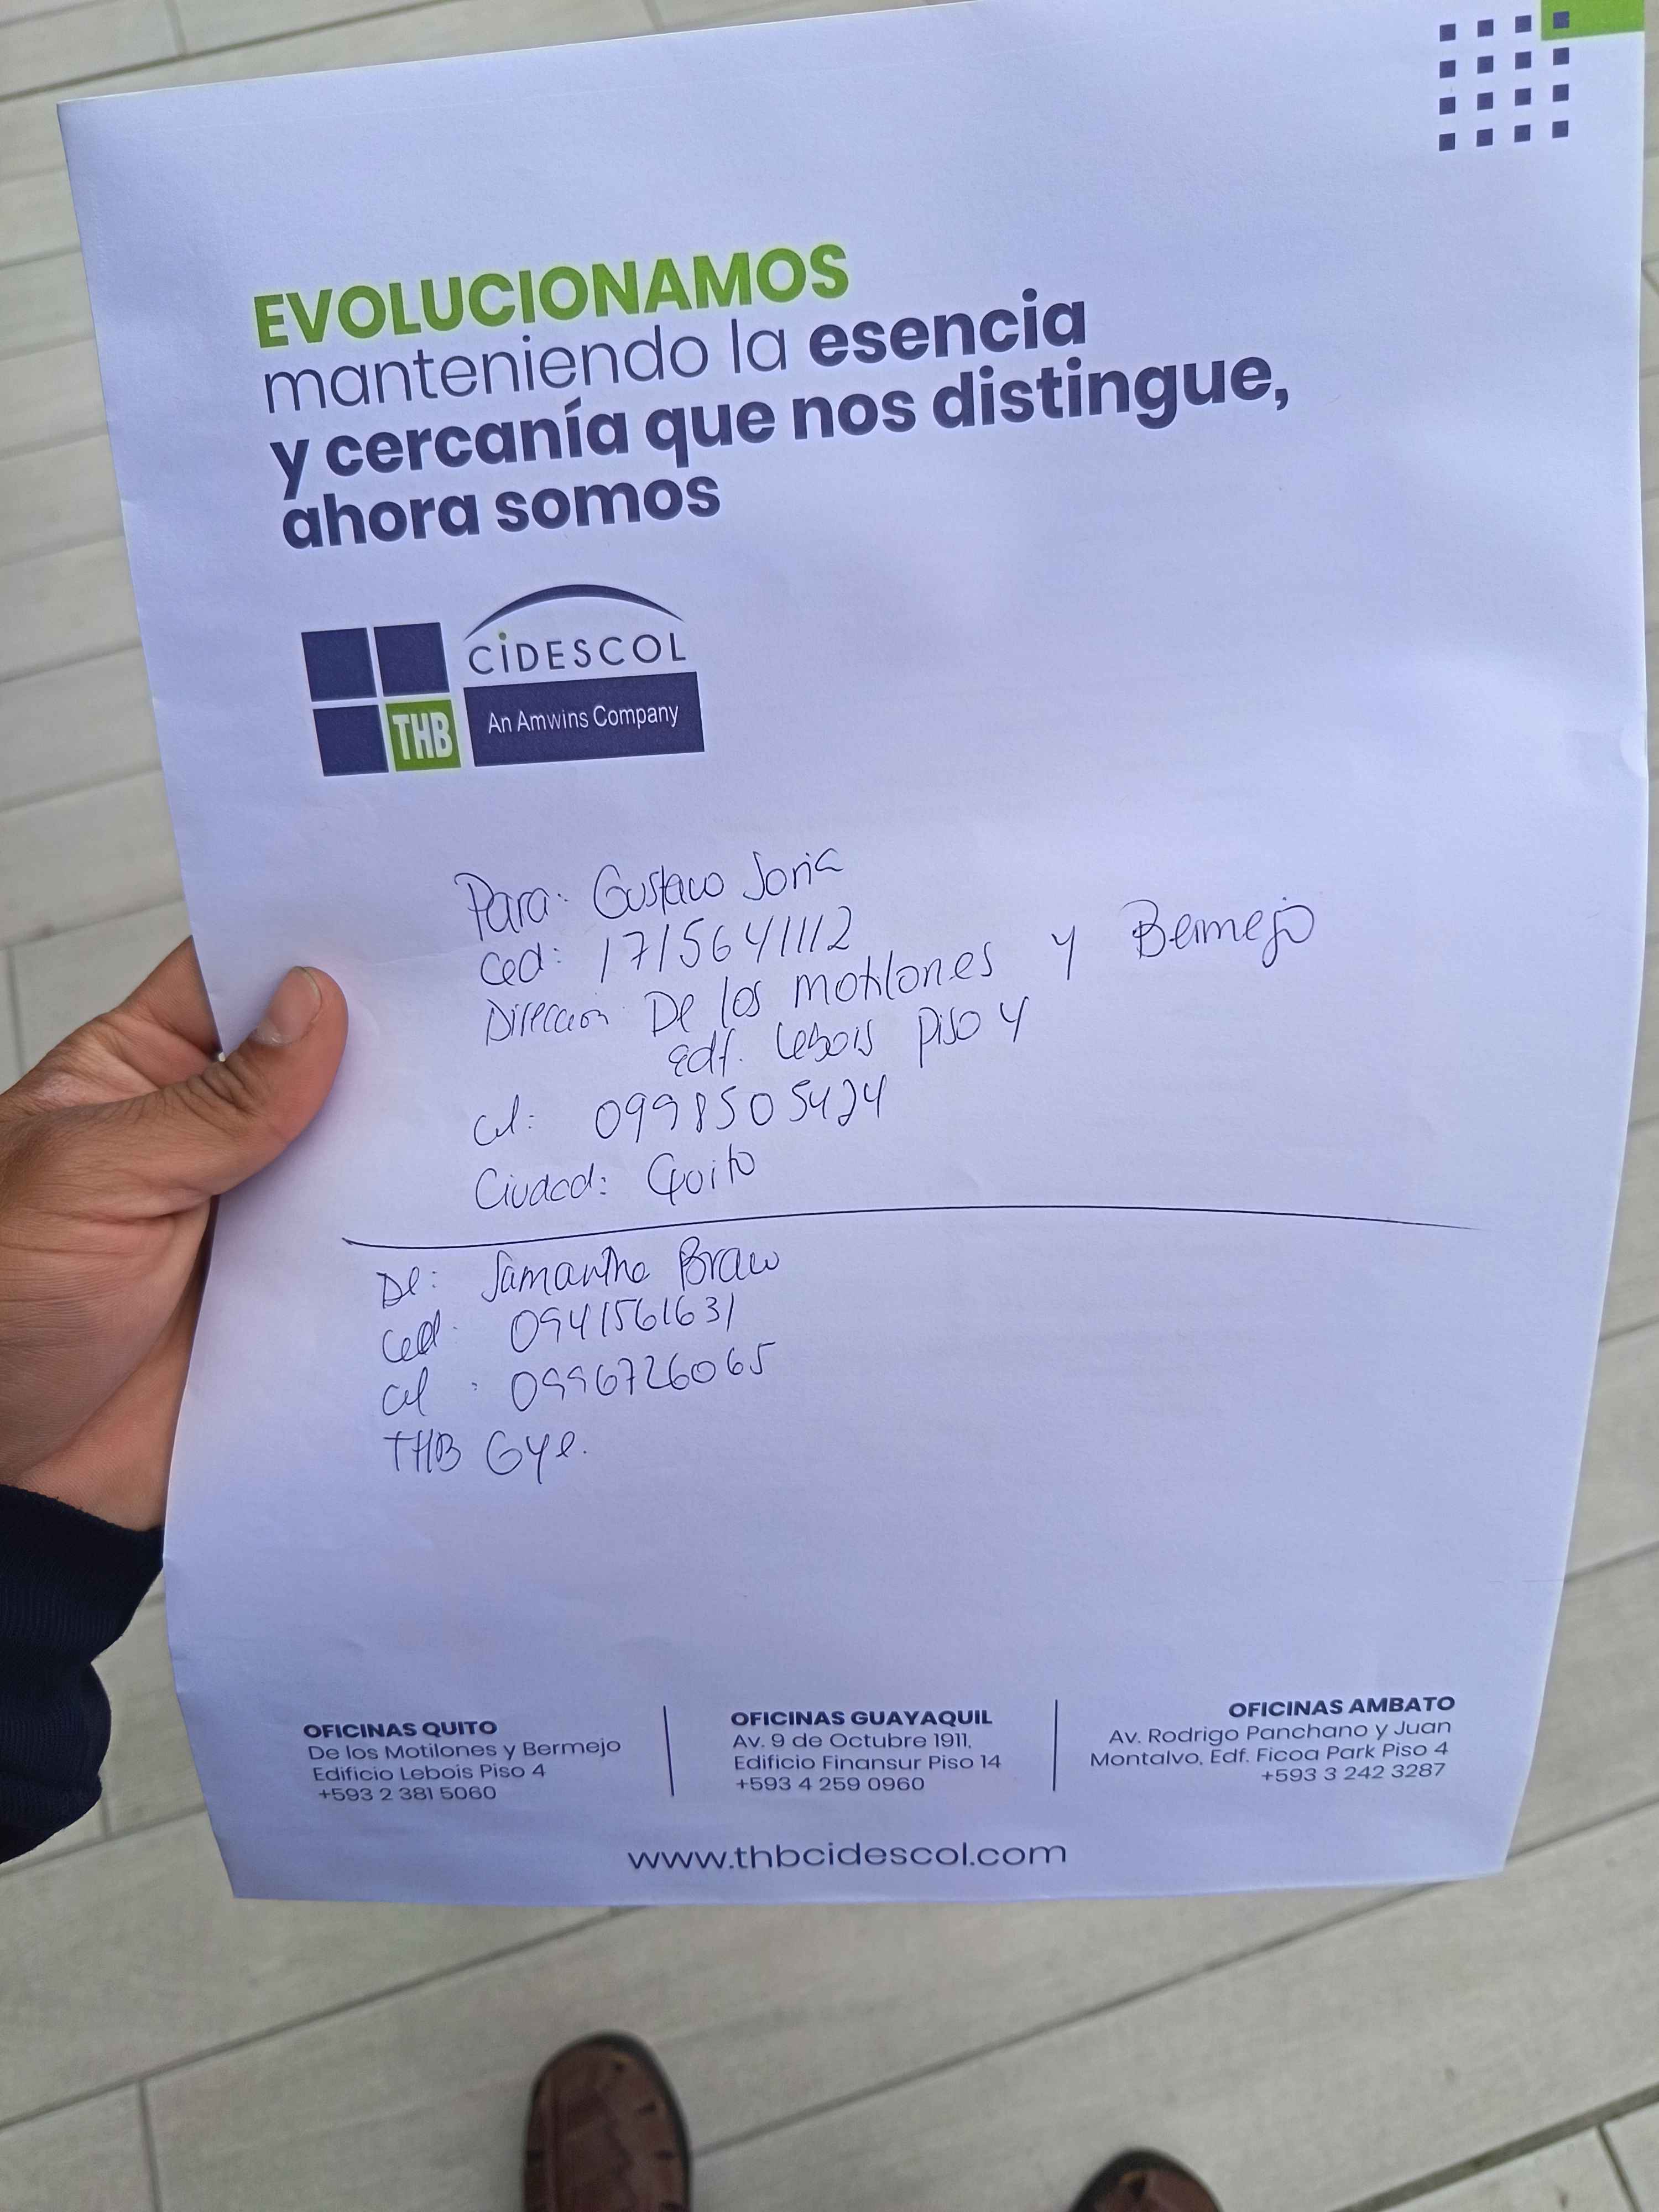 EVOLUCIONAMOS
manteniendo la esencia
y cercanía que nos distingue,
ahora somos
CiDESCOL
THB An Amwins Company
Para: Gustavo Soria
Ced: 1715641112
Dirección De los motilones y Bermejo
Edf. Lebois Piso 4
Cel: 0998505424
Ciudad: Quito
De: Samantha Bravo
Ced: 0941561631
Cel : 0996726065
THB Gye.
OFICINAS QUITO
De los Motilones y Bermejo
Edificio Lebois Piso 4
+593 2 381 5060
OFICINAS GUAYAQUIL
Av. 9 de Octubre 1911,
Edificio Finansur Piso 14
+593 4 259 0960
OFICINAS AMBATO
Av. Rodrigo Panchano y Juan
Montalvo, Edf. Ficoa Park Piso 4
+593 3 242 3287
www.thbcidescol.com